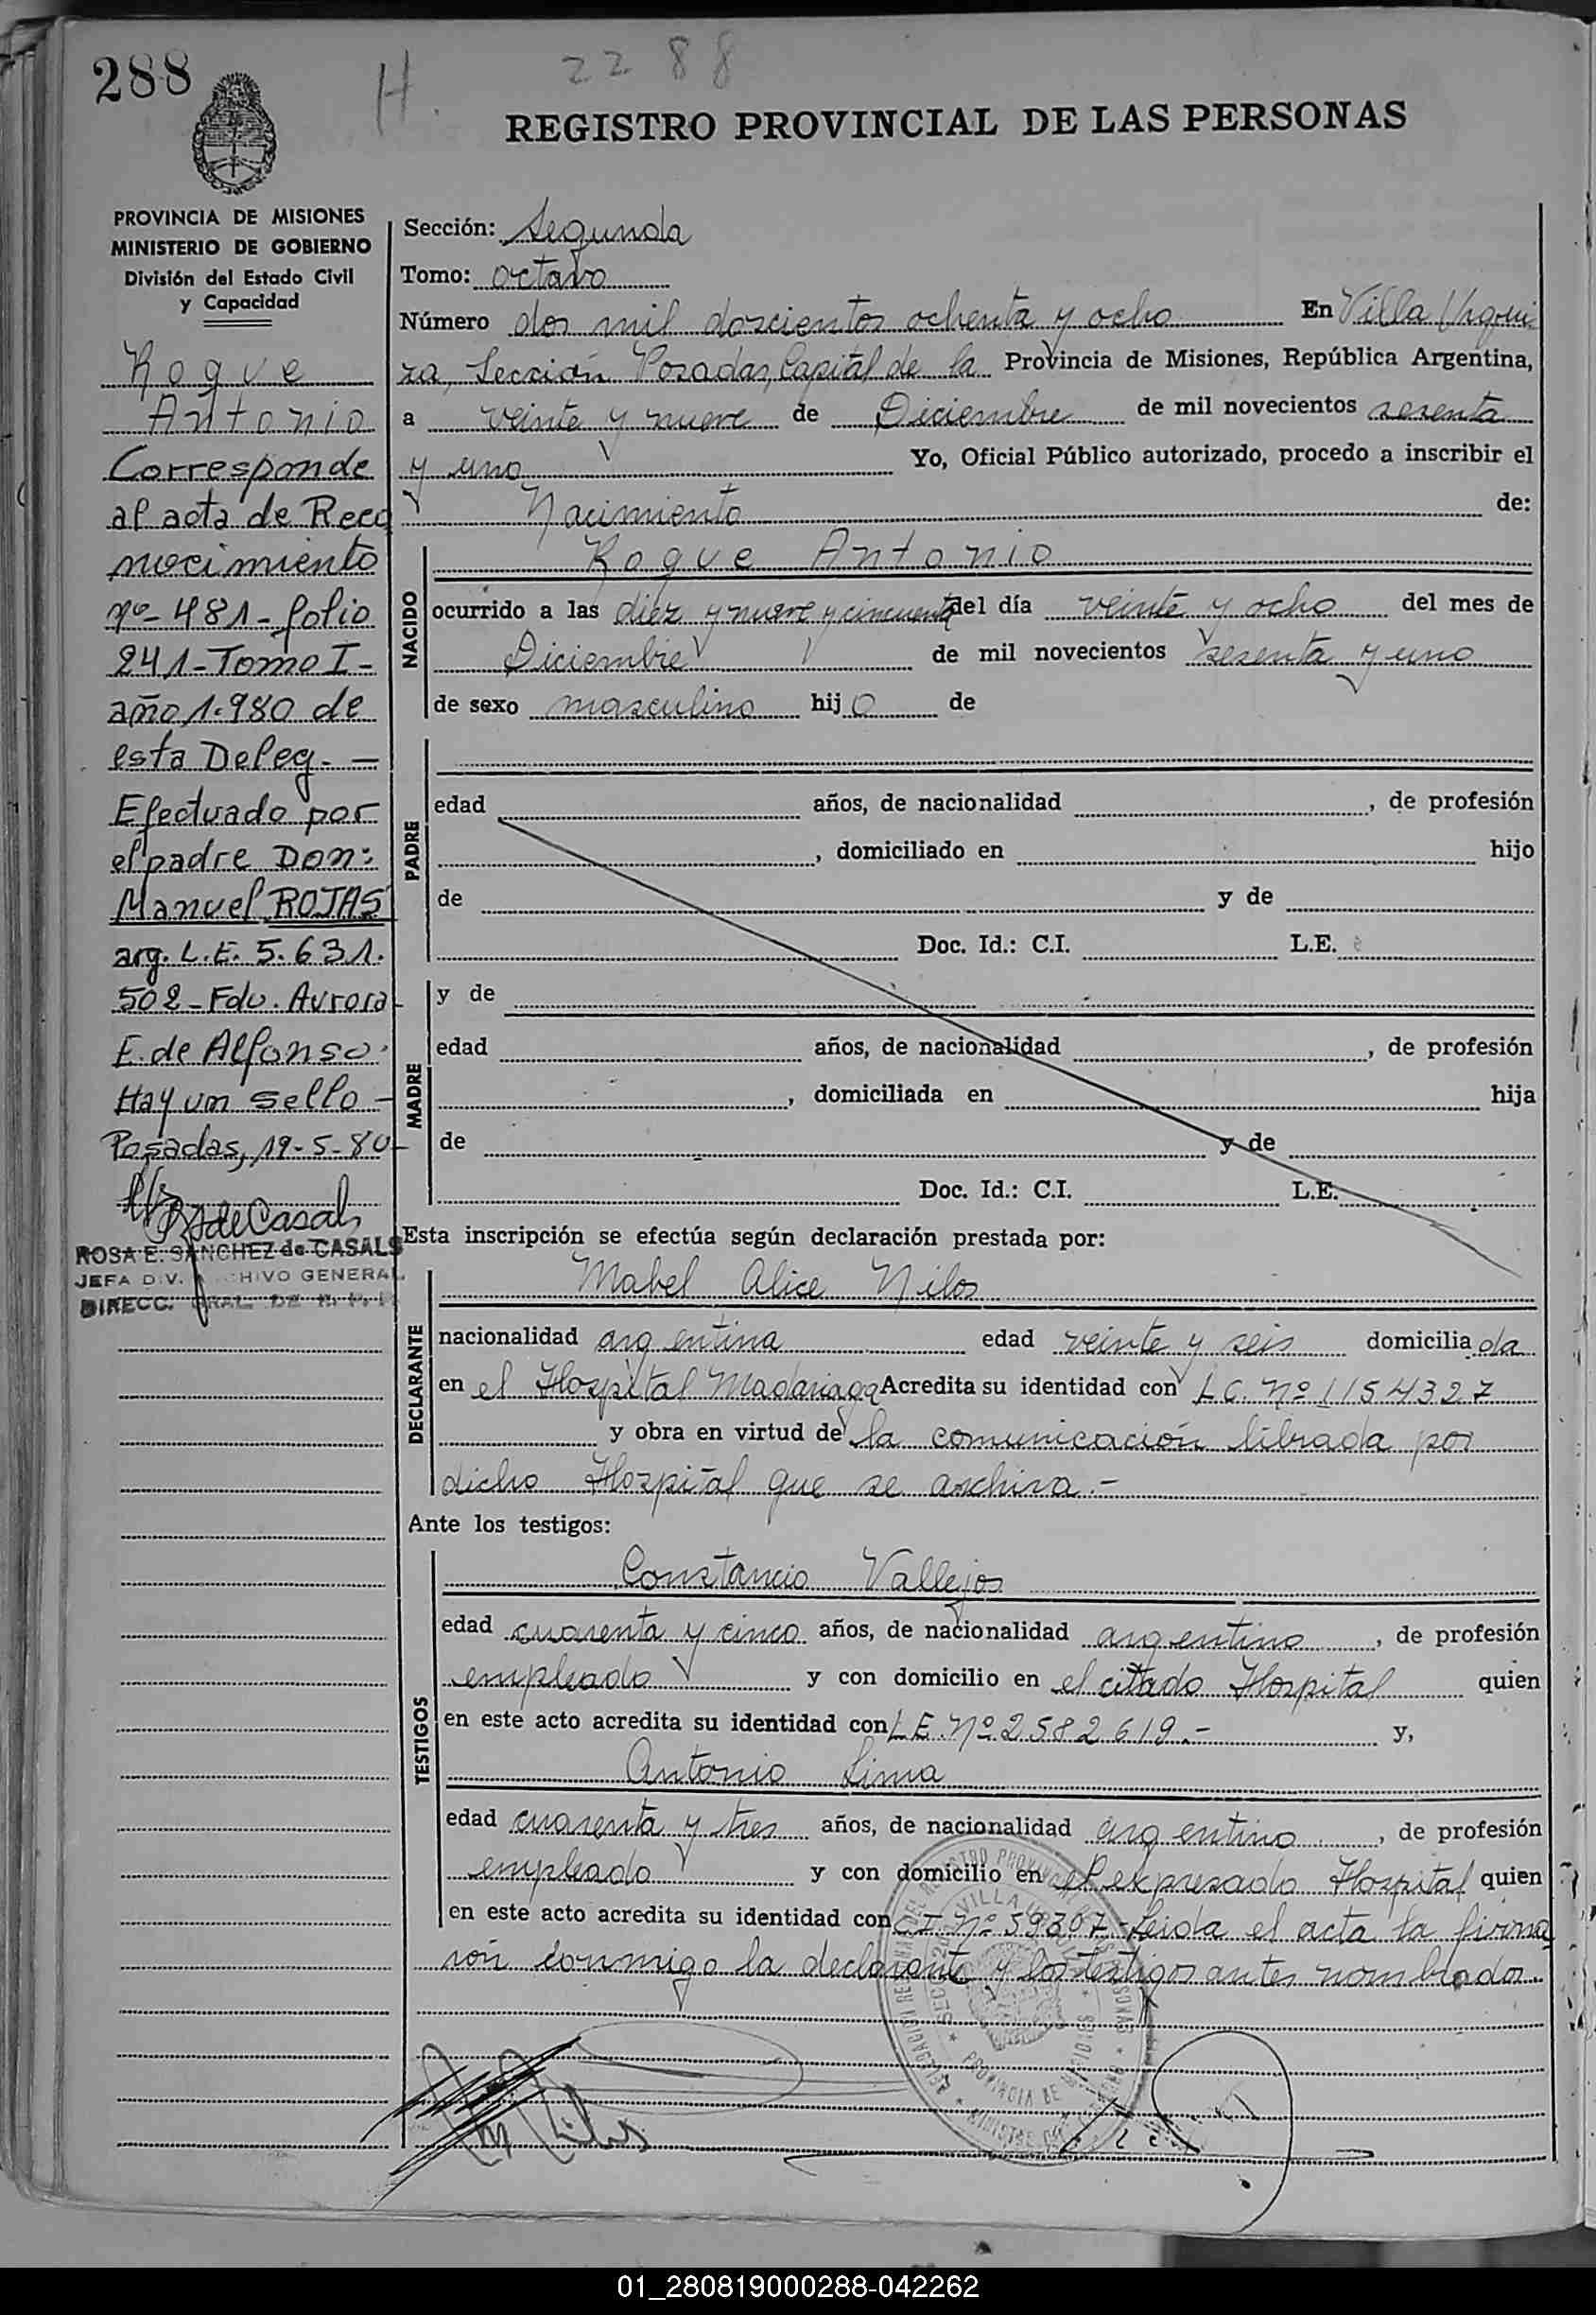 288
H. 2288
REGISTRO PROVINCIAL DE LAS PERSONAS
PROVINCIA DE MISIONES
MINISTERIO DE GOBIERNO
División del Estado Civil
y Capacidad
Roque
Antonio
Corresponde
al acta de Reco
nocimiento
nº-481-folio
241-Tomo I-
año 1.980 de
esta Deleg.-
Efectuado por
el padre Don:
Manuel ROJAS
arg. L.E. 5.631.
502-Fdo. Aurora
E. de Alfonso.
Hay un sello-
Posadas, 19-5-80-
RSdeCasals
ROSA E. SANCHEZ de CASALS
JEFA DIV. ARCHIVO GENERAL
DIRECC. GRAL DE
Sección: Segunda
Tomo: octavo
Número dos mil doscientos ochenta y ocho En Villa Urqui
za, Sección Posadas, Capital de la Provincia de Misiones, República Argentina,
a veinte y nueve de Diciembre de mil novecientos sesenta
y uno Yo, Oficial Público autorizado, procedo a inscribir el
Nacimiento de:
NACIDO
Roque Antonio
ocurrido a las diez y nueve y cincuenta del día veinte y ocho del mes de
Diciembre de mil novecientos sesenta y uno
de sexo masculino hijo de
PADRE
edad años, de nacionalidad , de profesión
, domiciliado en hijo
de y de
Doc. Id.: C.I. L.E.
MADRE
y de
edad años, de nacionalidad , de profesión
, domiciliada en hija
de y de
Doc. Id.: C.I. L.E.
Esta inscripción se efectúa según declaración prestada por:
DECLARANTE
Mabel Alice Nilos
nacionalidad argentina edad veinte y seis domiciliada
en el Hospital Madariaga Acredita su identidad con L.C. Nº 1154327
y obra en virtud de la comunicación librada por
dicho Hospital que se archiva.-
Ante los testigos:
TESTIGOS
Constancio Vallejos
edad cuarenta y cinco años, de nacionalidad argentino, de profesión
empleado y con domicilio en el citado Hospital quien
en este acto acredita su identidad con L.E. Nº 2582619.- y,
Antonio Lima
edad cuarenta y tres años, de nacionalidad argentino, de profesión
empleado y con domicilio en el expresado Hospital quien
en este acto acredita su identidad con C.I. Nº 59307-Leida el acta la firma
ron conmigo la declarante y los testigos antes nombrados.
M Nilos
01_280819000288-042262